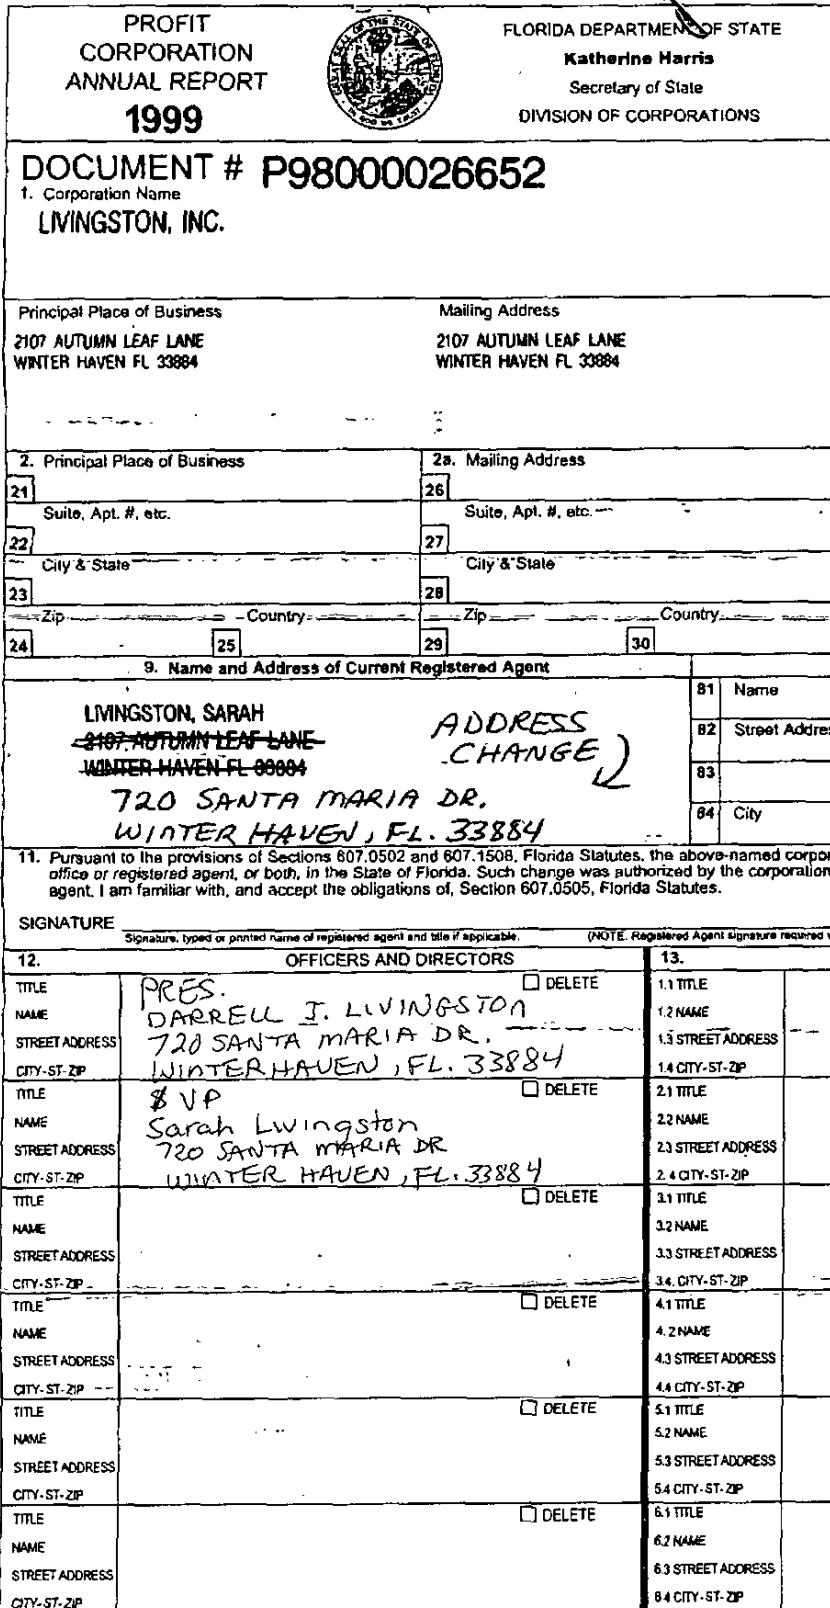 PROFIT
CORPORATION
ANNUAL REPORT
1999
FLORIDA DEPARTMENT OF STATE
Katherine Harris
Secretary of State
DIVISION OF CORPORATIONS
DOCUMENT # P98000026652
1. Corporation Name
LIVINGSTON, INC.
Principal Place of Business
Mailing Address
2107 AUTUMN LEAF LANE
WINTER HAVEN FL 33884
2107 AUTUMN LEAF LANE
WINTER HAVEN FL 33884
2. Principal Place of Business
2a. Mailing Address
21
26
Suite, Apt. #, etc.
Suite, Apt. #, etc.
22
27
City & State
City & State
23
28
Zip
Country
Zip
Country
24
25
29
30
9. Name and Address of Current Registered Agent
LIVINGSTON, SARAH
2107 AUTUMN LEAF LANE
WINTER HAVEN FL
ADDRESS
CHANGE
720 SANTA MARIA DR.
WINTER HAVEN, FL. 33884
81 Name
82 Street Addre
83
84 City
11. Pursuant to the provisions of Sections 607.0502 and 607.1508, Florida Statutes, the above-named corpor
office or registered agent, or both, in the State of Florida. Such change was authorized by the corporation
agent, I am familiar with, and accept the obligations of, Section 607.0505, Florida Statutes.
SIGNATURE
Signature, typed or printed name of registered agent and title if applicable.
(NOTE. Registered Agent signature required
12. OFFICERS AND DIRECTORS
13.
TITLE PRES. DELETE
NAME DARRELL J. LIVINGSTON
STREET ADDRESS 720 SANTA MARIA DR.
CITY-ST-ZIP WINTER HAVEN, FL. 33884
1.1 TITLE
1.2 NAME
1.3 STREET ADDRESS
1.4 CITY-ST-ZIP
TITLE VP DELETE
NAME Sarah Livingston
STREET ADDRESS 720 SANTA MARIA DR
CITY-ST-ZIP WINTER HAVEN, FL. 33884
2.1 TITLE
2.2 NAME
2.3 STREET ADDRESS
2.4 CITY-ST-ZIP
TITLE DELETE
NAME
STREET ADDRESS
CITY-ST-ZIP
3.1 TITLE
3.2 NAME
3.3 STREET ADDRESS
3.4. CITY-ST-ZIP
TITLE DELETE
NAME
STREET ADDRESS
CITY-ST-ZIP
4.1 TITLE
4.2 NAME
4.3 STREET ADDRESS
4.4 CITY-ST-ZIP
TITLE DELETE
NAME
STREET ADDRESS
CITY-ST-ZIP
5.1 TITLE
5.2 NAME
5.3 STREET ADDRESS
5.4 CITY-ST-ZIP
TITLE DELETE
NAME
STREET ADDRESS
CITY-ST-ZIP
6.1 TITLE
6.2 NAME
6.3 STREET ADDRESS
6.4 CITY-ST-ZIP